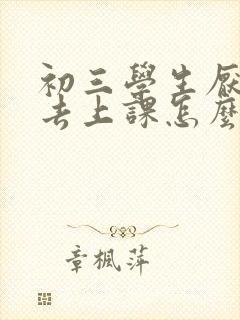 初三學生厭
去上課怎麼
章楓萍